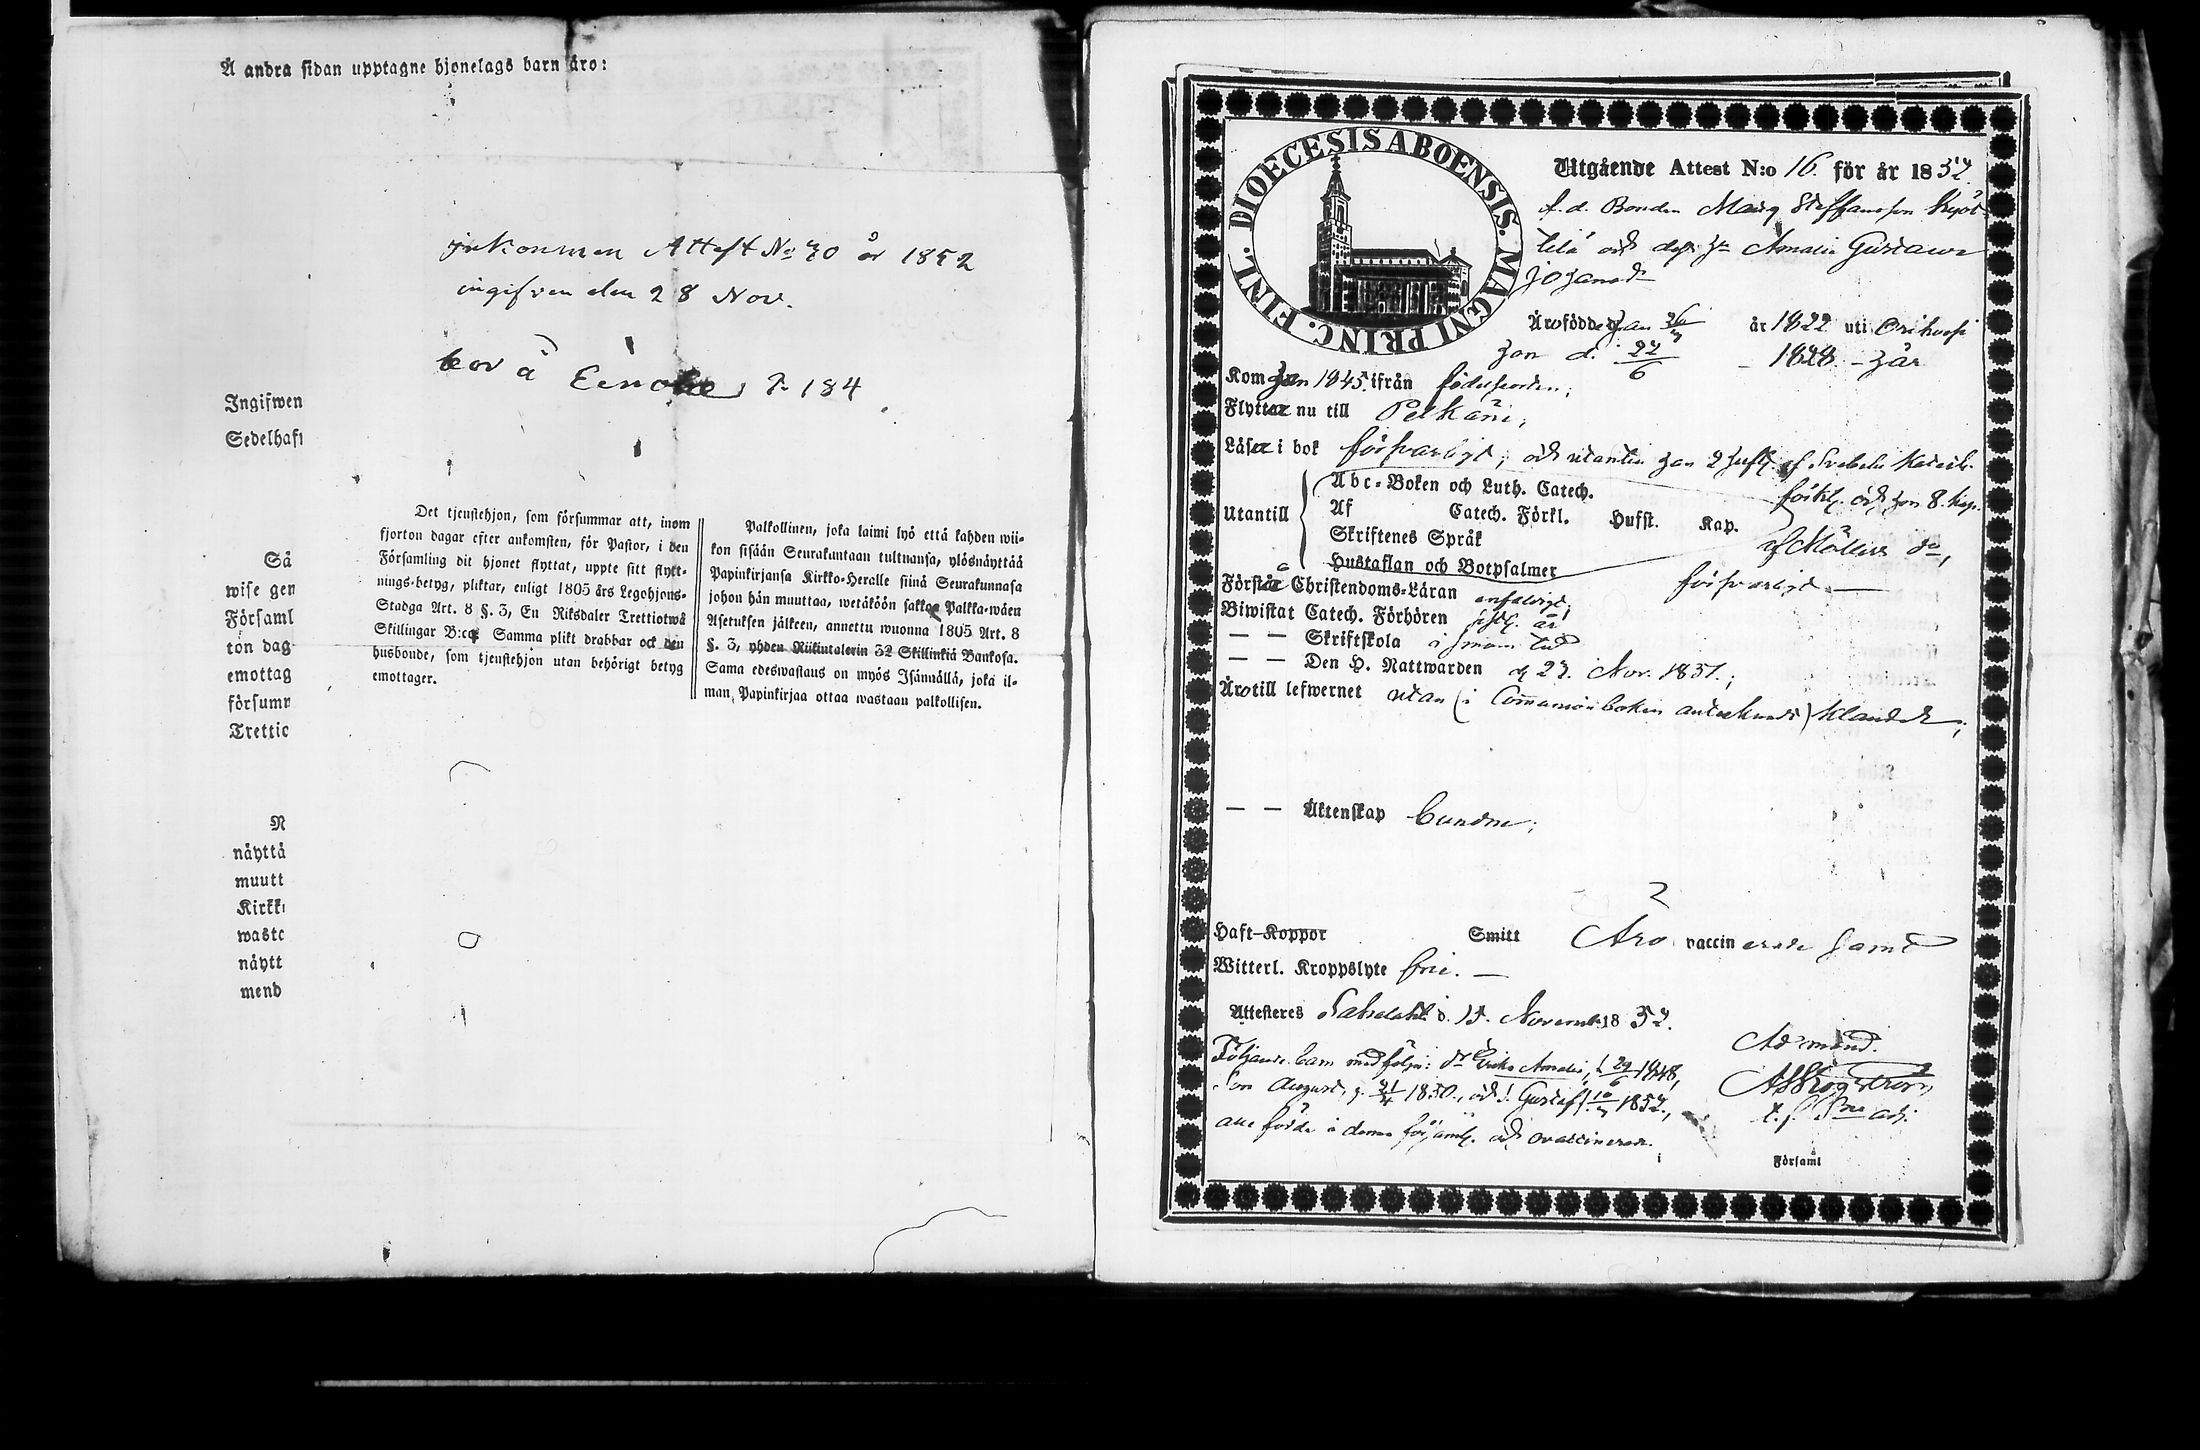 Å andra sidan upptagne hjonelags barn äro:
inkommen Attest No 70 år 1852
ingifven den 28 Nov.
bor å
184
Ingifwen
Sedelhaft
Så
wise gen
Församl
ton dag
emottag
försumr
Trettio
N
näyttä
muutt
Kirkk
waste
näytt
mend
Det tjenstehjon, som försummar att, inom
fjorton dagar efter ankomsten, för Pastor, i den
Församling dit hjonet flyttat, uppte sitt flytt-
nings-betyg, pliktar, enligt 1805 års Legohjons-
Stadga Art. 8 §. 3, En Riksdaler Trettiotwå
Skillingar B:co. Samma plikt drabbar ock den
husbonde, som tjenstehjon utan behörigt betyg
emottager.
Palkollinen, joka laimi lyö että kahden wii-
kon sisään Seurakuntaan tultuansa, ylösnäyttää
Papinkirjansa Kirkko-Heralle siinä Seurakunnasa
johon hän muuttaa, wetäköön sakkoa Palkka-wäen
Asetuksen jälkeen, annettu wuonna 1805 Art. 8
§. 3, yhden Riikintalerin 32 Skillinkiä Bankosa.
Sama edeswastaus on myös Isännällä, joka il-
man Papinkirjaa ottaa wastaan palkollisen.
DIOECESIS ABOENSIS. MAGNI PRINC. FINL.
Utgående Attest N:o 16 för år 1852
f. d. Bonden Steffansson
och dess h:u Amalia Gustava
Äro födde han 26 år 1822 uti Orihvesi
hon d. 27/6 – 1828 – här
Kom han 1845 ifrån födelseorten;
Flytta nu till Pelkäne;
Läsa i bok försvarligt, och utantill han 2 hufst. af Svebelii Katech.
förkl. och hon 8. kap.
Utantill
Abc-Boken och Luth. Catech.
Af Catech. Förkl. Hufst. Kap.
Skriftenes Språk
af Möllers do,
Hustaflan och Botpsalmer
Förstå Christendoms-Läran enfaldigt; försvarligt —
Biwistat Catech. Förhören sistl. år
— — Skriftskola i sinom tid
— — Den H. Nattwarden d. 23. Nov. 1851.;
Äro till lefwernet utan (i Communionboken antecknadt) klander;
— — Äktenskap bundne;
Haft Koppor Smitt Äro vaccinerade samt
Witterl. Kroppslyte frie. —
Attesteres Sahalaks d. 15. Novemb. 1852.
Följande barn medfölja: dr Erika Amalia, f. 29/6 1848,
Son August, f. 21/4 1850., och s. Gustaf f. 10/7 1852.,
alla födde i denna församl. och ovaccinerade.
Ad mand.
i Församl